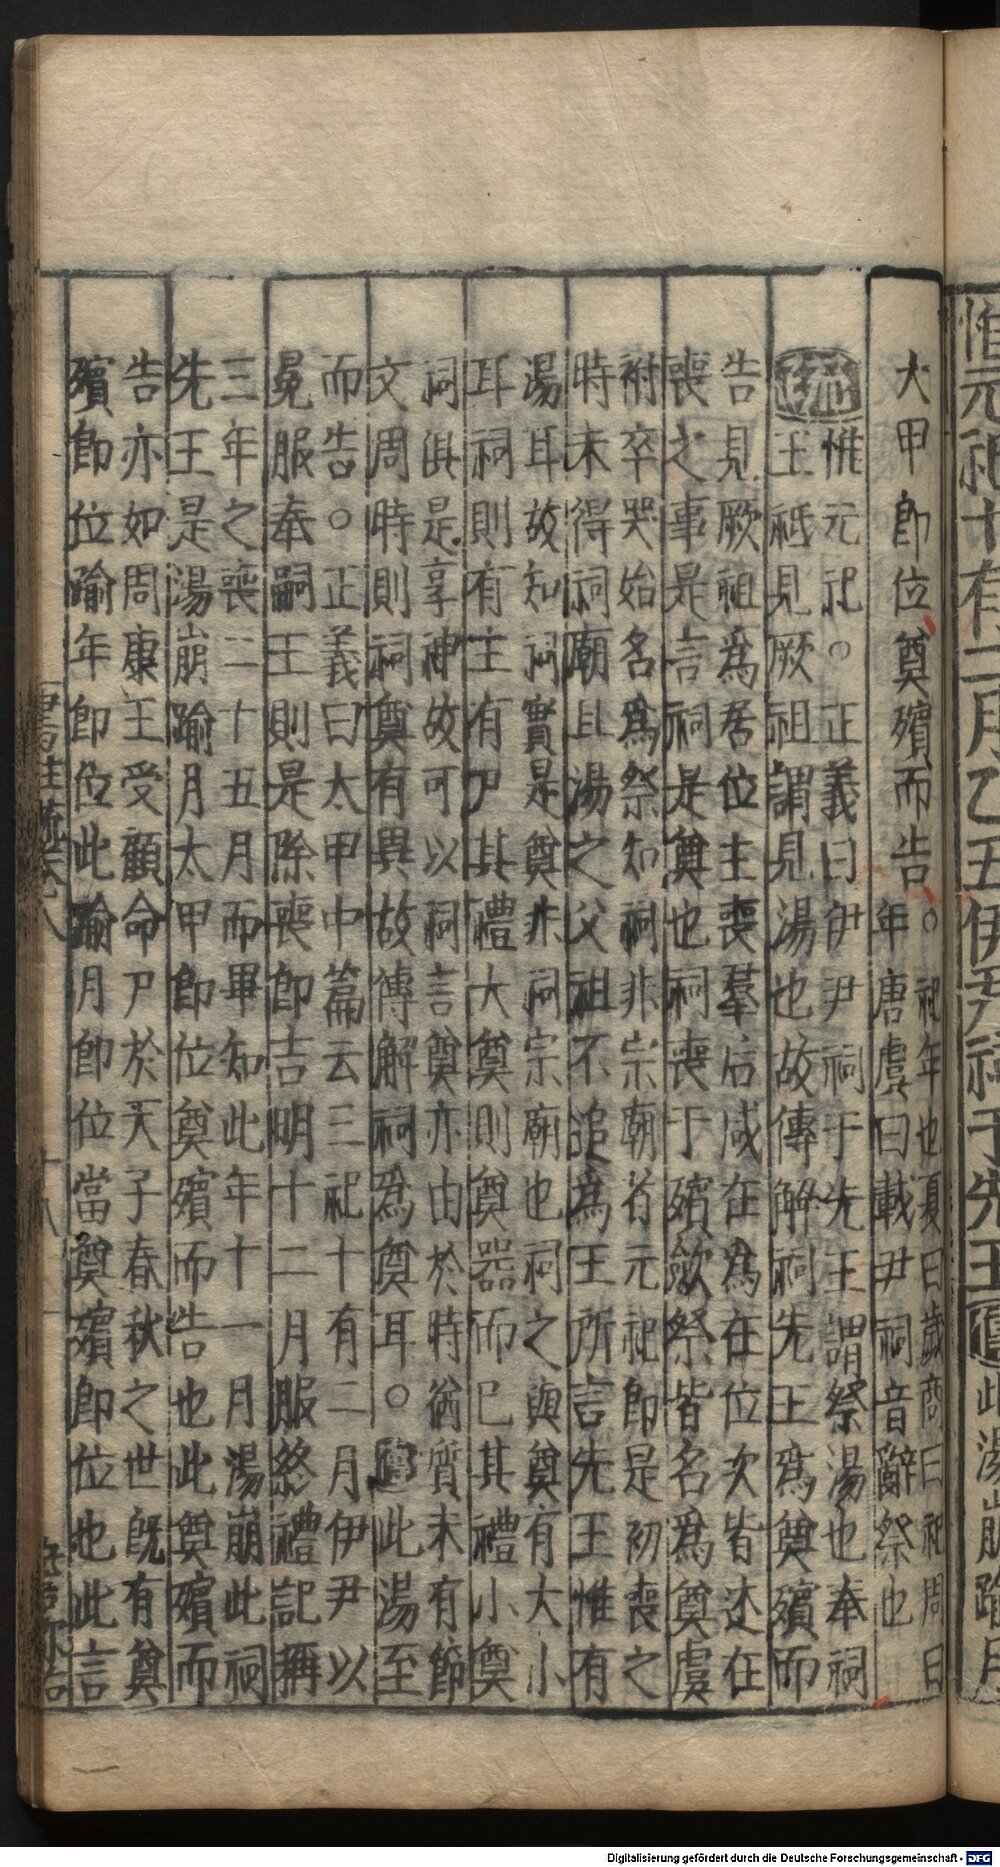 惟元祀十有二月乙丑伊尹祠于先王傳此湯崩踰月
太甲即位奠殯而告○祀年也夏曰歲商曰祀周曰
年唐虞曰載尹祠音辭祭也
疏惟元祀○正義曰伊尹祠于先王謂祭湯也奉祠
王祗見厥祖謂見湯也故傳解祠先王爲奠殯而
告見厥祖爲居位主喪羣后咸在爲在位次皆述在
喪之事是言祠是奠也祠喪于殯斂祭皆名爲奠虞
祔卒哭始名爲祭知祠非宗廟者元祀即是初喪之
時未得祠廟且湯之父祖不追爲王所言先王惟有
湯耳故知祠實是奠非祠宗廟也祠之與奠有大小
耳祠則有主有尸其禮大奠則奠器而已其禮小奠
祠俱是享神故可以祠言奠亦由於時猶質未有節
文周時則祠奠有異故傳解祠爲奠耳○傳此湯至
而告○正義曰太甲中篇云三祀十有二月伊尹以
冕服奉嗣王則是除喪即吉明十二月服終禮記稱
三年之喪二十五月而畢知此年十一月湯崩此祠
先王是湯崩踰月太甲即位奠殯而告也此奠殯而
告亦如周康王受顧命尸於天子春秋之世既有奠
殯即位踰年即位此踰月即位當奠殯即位也此言
書注疏卷八
十八
Digitalisierung gefördert durch die Deutsche Forschungsgemeinschaft - DFG